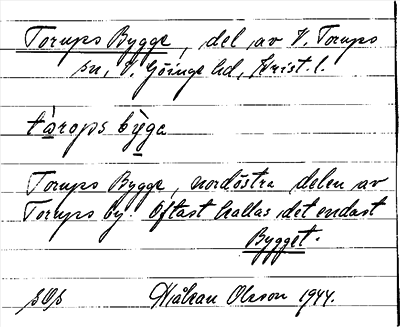 Torups Bygge, del av V. Torups
sn, V. Göinge hd, Krist. l.
tàrops bỳga
Torups Bygge, nordöstra delen av
Torups by. Oftast kallas det endast
Bygget.
Håkan Olsson 1944.